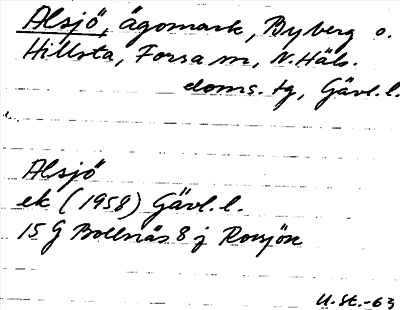 Alsjö, ägomark, Byberg o.
Hillsta, Forsa sn, N. Häls.
doms. tg, Gävl. l.
Alsjö
ek (1958) Gävl. l.
15 G Bollnäs 8 j Rossjön
U. St. -63